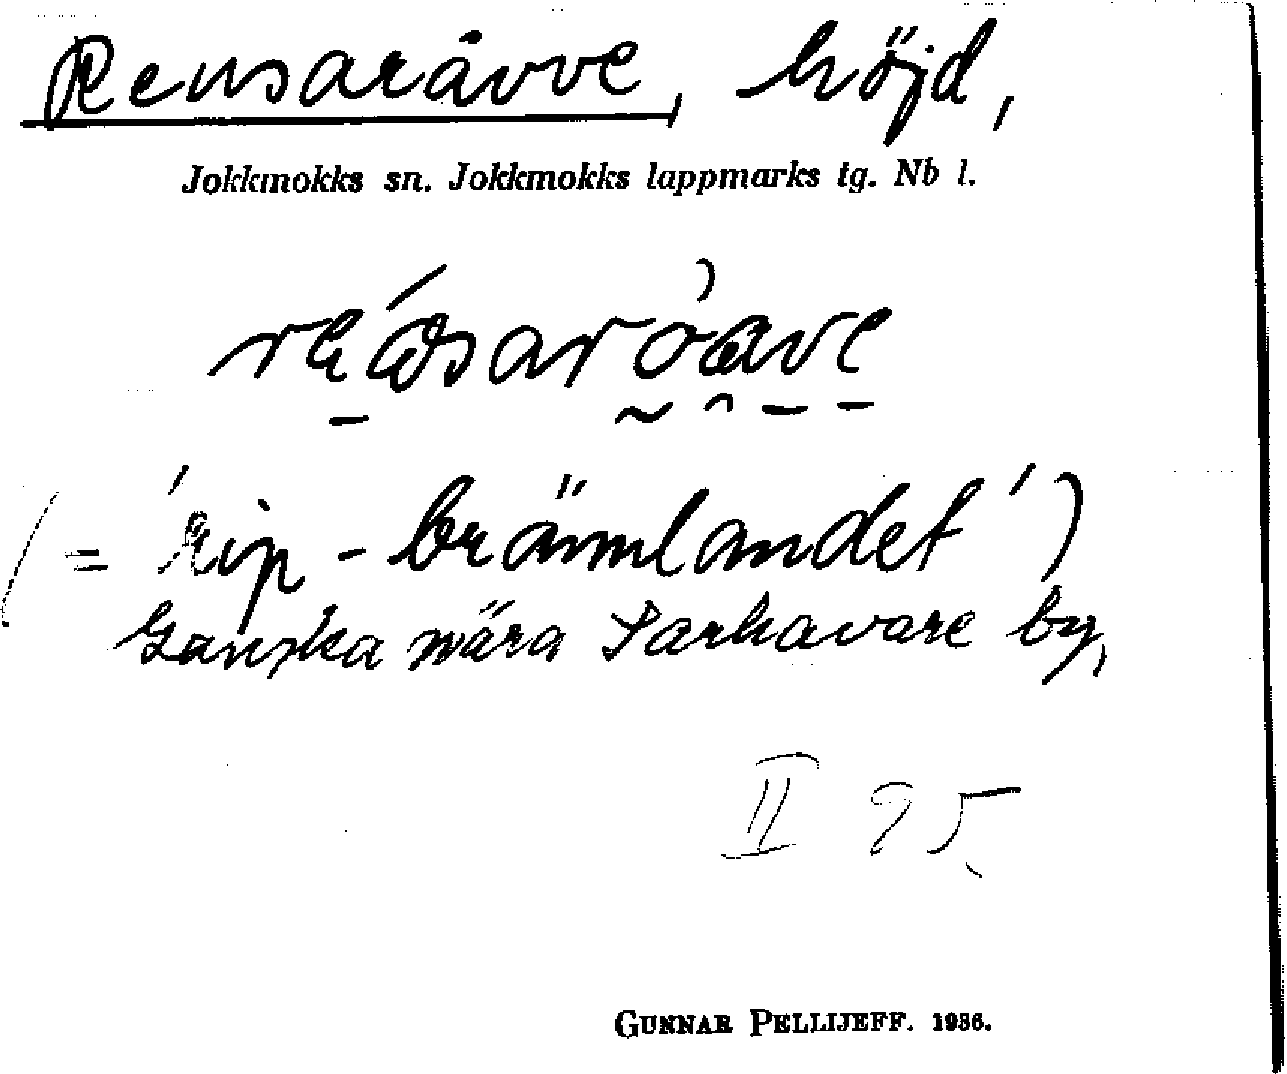 Reusaråvve, höjd,
Jokkmokks sn. Jokkmokks lappmarks tg. Nb l.
(= 'rip-brännlandet')
Ganska nära Sarkavare by,
II 95.
GUNNAR PELLIJEFF. 1936.